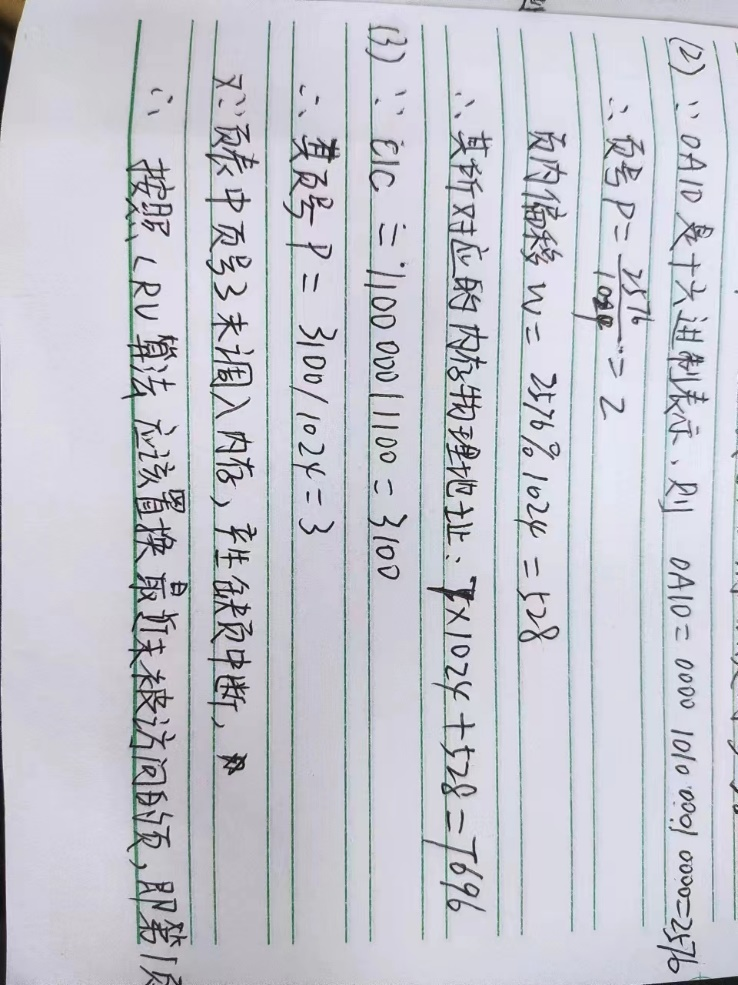 (2) ∵ 0A10是十六进制表示,则 0A10 = 0000 1010 0001 0000=2576
∴ 页号 P = 2576/1024 = 2
页内偏移 W = 2576%1024 = 528
∴ 其所对应的内存物理地址: 7×1024+528=7696
(3) ∵ C1C = 1100 0001 1100 = 3100
∴ 其页号 P = 3100/1024=3
又∵页表中页号3未调入内存,产生缺页中断,
∴ 按照LRU算法 应该置换最近未被访问的页,即第1页